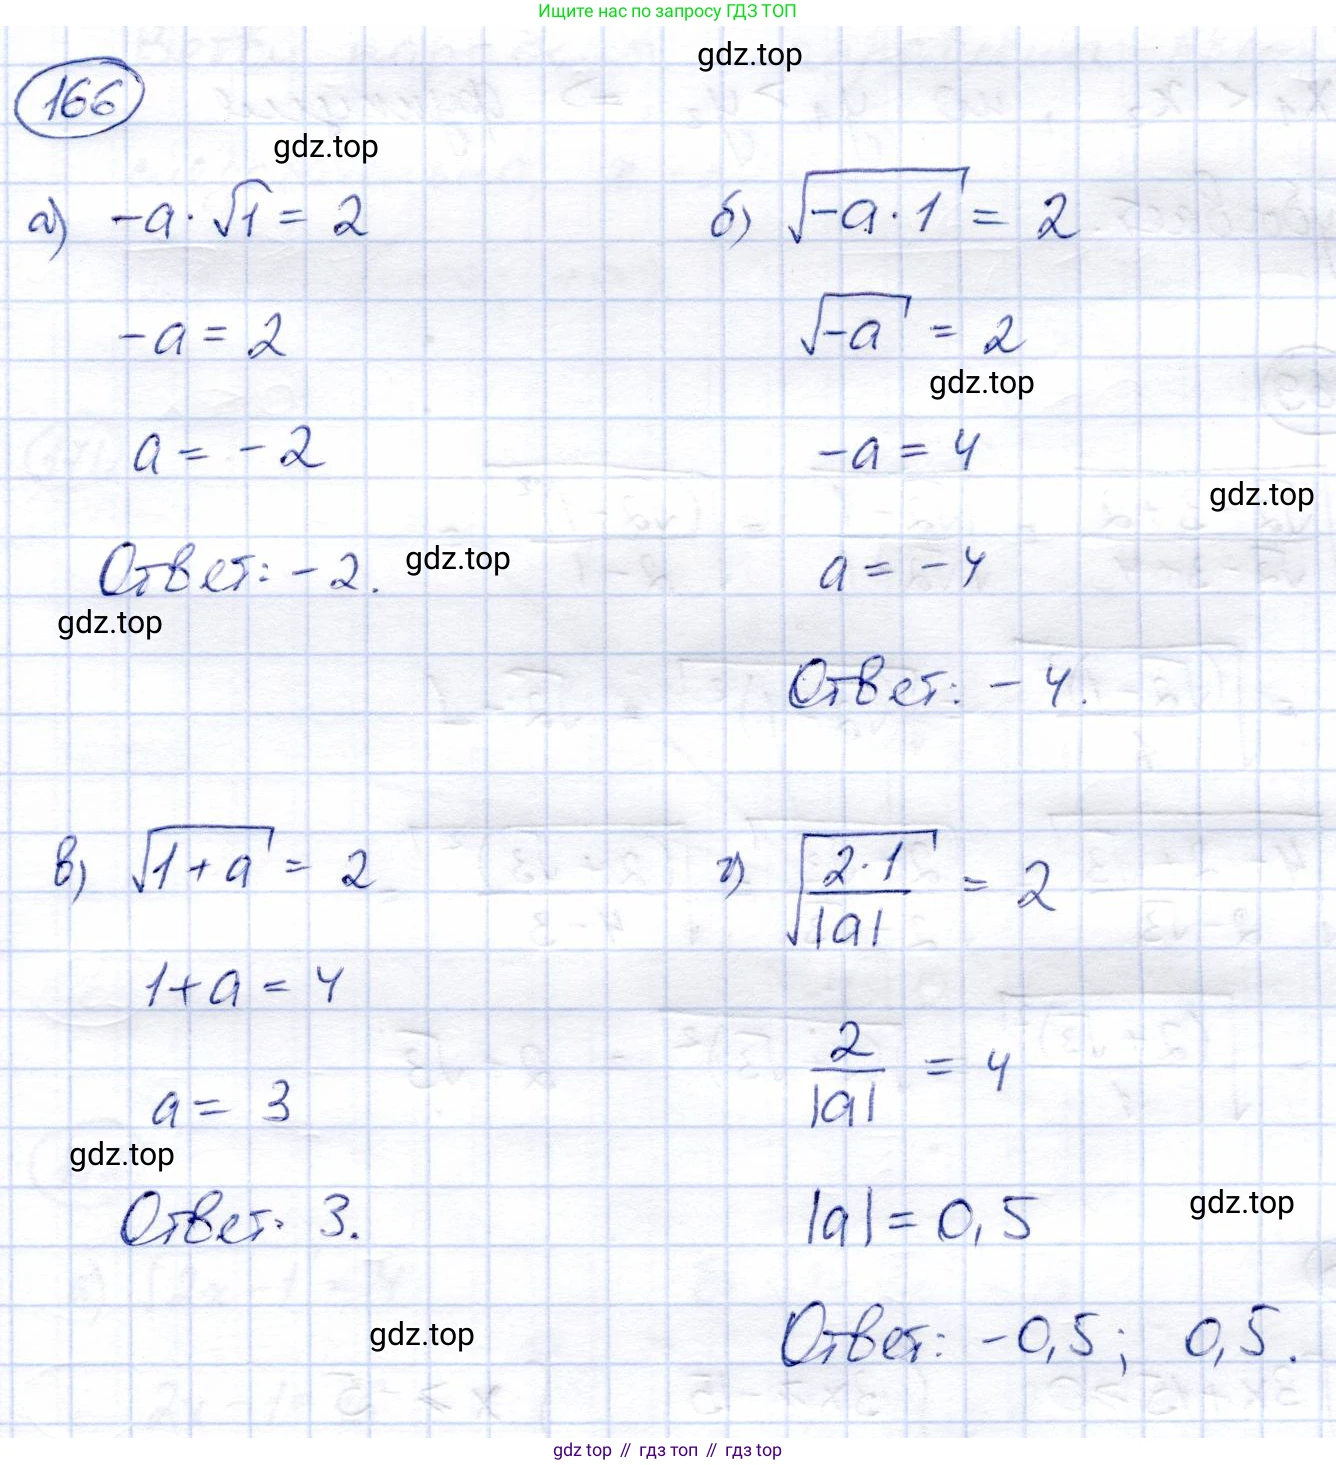 Ищите нас по запросу ГДЗ ТОП
gdz.top
166
gdz.top
а) -a · √1 = 2
-a = 2
a = -2
Ответ: -2.
gdz.top
gdz.top
б) √(-a · 1) = 2
√(-a) = 2
gdz.top
-a = 4
gdz.top
a = -4
Ответ: -4.
в) √(1+a) = 2
1+a = 4
a = 3
gdz.top
Ответ: 3.
gdz.top
г) √(2·1/|a|) = 2
2/|a| = 4
gdz.top
|a| = 0,5
Ответ: -0,5; 0,5.
gdz top // гдз топ // гдз top